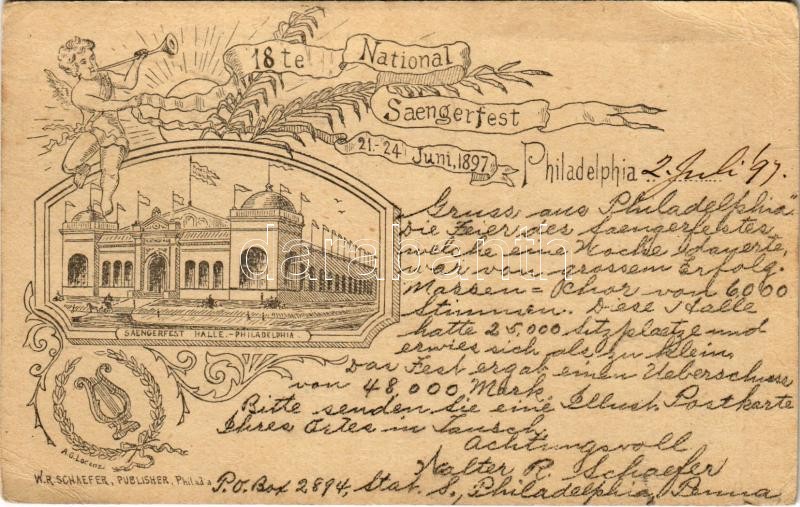 18te National
Saengerfest
21.-24. Juni, 1897.
Philadelphia 2. Juli '97.
"Gruss aus Philadelphia"
Die Feier des Saengerfestes
welche eine Woche dauerte,
war von grossem Erfolg.
Massen=Chor von 6000
Stimmen. Dese Halle
hatte 25,000 Sitzplaetze und
erwies sich als zu klein.
Das Fest ergab einen Ueberschuss
von 48.000 Mark.
Bitte senden Sie eine Illust. Postkarte
Ihres Ortes in Tausch.
Achtungsvoll
Walter R. Schaefer
P.O. Box 2894, Stat. S., Philadelphia, Penna
SAENGERFEST HALLE.-PHILADELPHIA.
A.G. Lorenz
W.R. SCHAEFER, PUBLISHER, Philad'a
darabanth